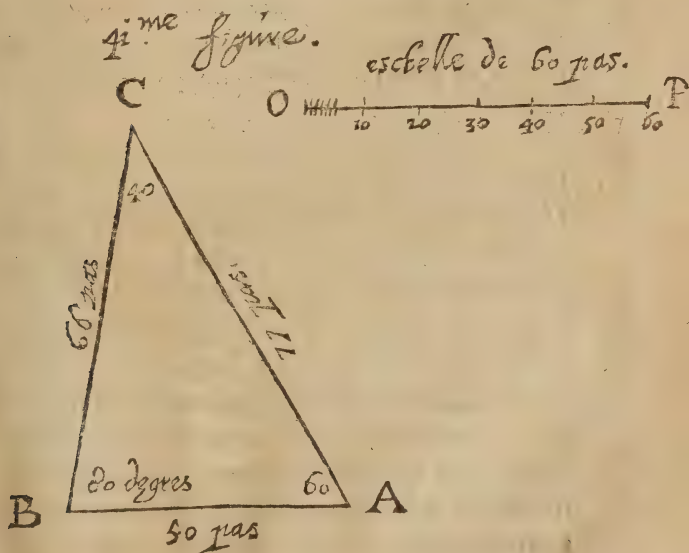 4i.me figure.
eschelle de 60 pas.
C
O P
10 20 30 40 50 60
40
68 pas
77 pas.
80 degres 60
B A
50 pas